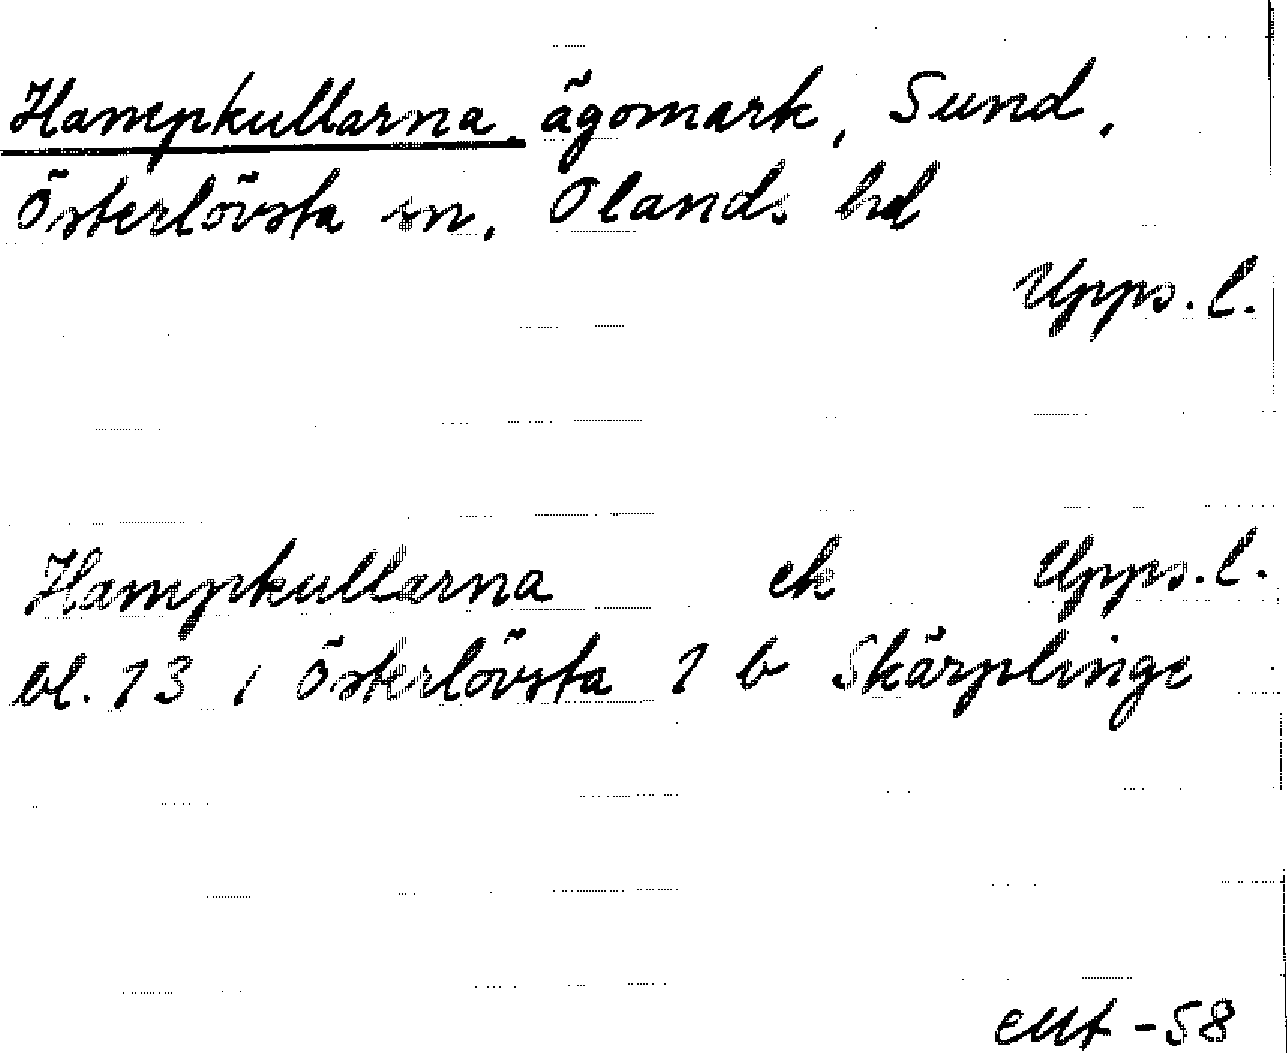 Hampkullarna, ägomark, Sund,
Österlövsta sn, Olands hd
Upps. l.
Hampkullarna ek Upps. l.
bl. 13 i Österlövsta 1 b Skärplinge
-58